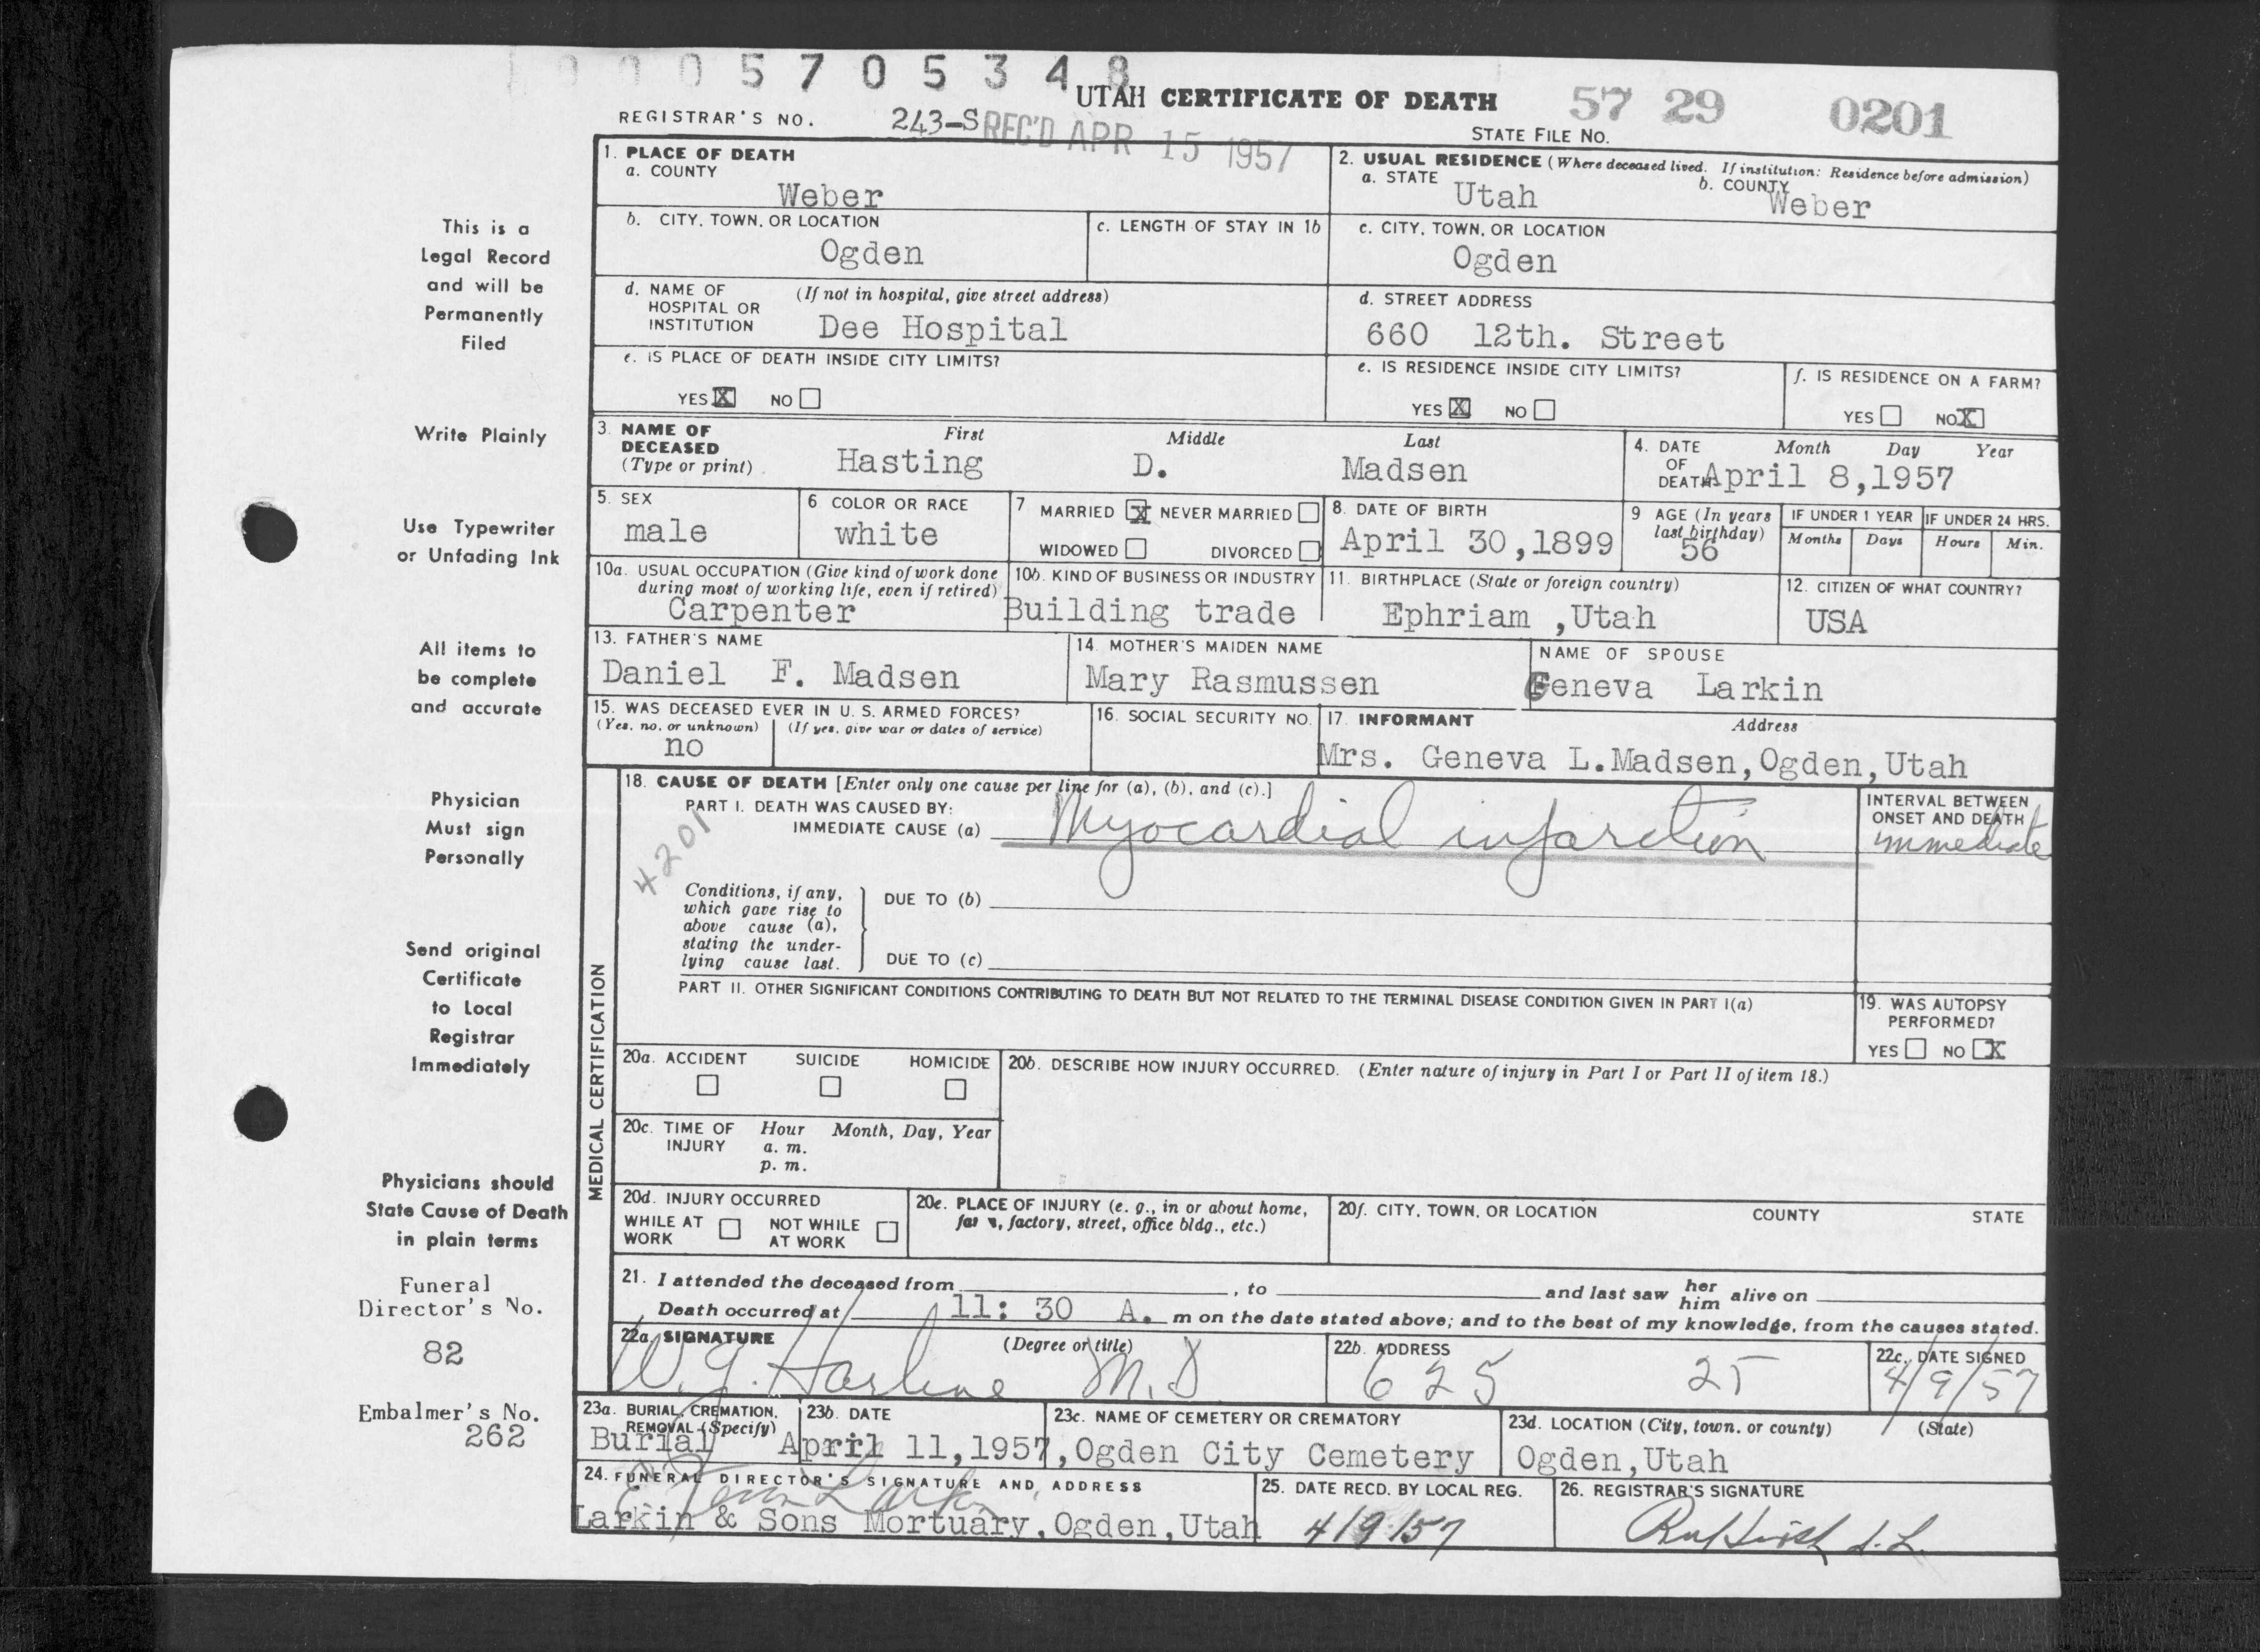 5705348
UTAH CERTIFICATE OF DEATH 57 29 0201
REGISTRAR'S NO. 243-S REC'D APR 15 1957 STATE FILE NO.
1. PLACE OF DEATH
a. COUNTY
Weber
2. USUAL RESIDENCE (Where deceased lived. If institution: Residence before admission)
a. STATE Utah b. COUNTY Weber
b. CITY, TOWN, OR LOCATION
Ogden
c. LENGTH OF STAY IN 1b
c. CITY, TOWN, OR LOCATION
Ogden
d. NAME OF HOSPITAL OR INSTITUTION (If not in hospital, give street address)
Dee Hospital
d. STREET ADDRESS
660 12th. Street
e. IS PLACE OF DEATH INSIDE CITY LIMITS?
YES X NO
e. IS RESIDENCE INSIDE CITY LIMITS?
YES X NO
f. IS RESIDENCE ON A FARM?
YES NO X
3. NAME OF DECEASED (Type or print) First Middle Last
Hasting D. Madsen
4. DATE OF DEATH Month Day Year
April 8,1957
5. SEX
male
6 COLOR OR RACE
white
7 MARRIED X NEVER MARRIED
WIDOWED DIVORCED
8. DATE OF BIRTH
April 30,1899
9 AGE (In years last birthday)
56
IF UNDER 1 YEAR IF UNDER 24 HRS.
Months Days Hours Min.
10a. USUAL OCCUPATION (Give kind of work done during most of working life, even if retired)
Carpenter
10b. KIND OF BUSINESS OR INDUSTRY
Building trade
11. BIRTHPLACE (State or foreign country)
Ephriam ,Utah
12. CITIZEN OF WHAT COUNTRY?
USA
13. FATHER'S NAME
Daniel F. Madsen
14. MOTHER'S MAIDEN NAME
Mary Rasmussen
NAME OF SPOUSE
Geneva Larkin
15. WAS DECEASED EVER IN U. S. ARMED FORCES?
(Yes, no, or unknown) (If yes, give war or dates of service)
no
16. SOCIAL SECURITY NO.
17. INFORMANT Address
Mrs. Geneva L.Madsen,Ogden,Utah
MEDICAL CERTIFICATION
18. CAUSE OF DEATH [Enter only one cause per line for (a), (b), and (c).]
PART I. DEATH WAS CAUSED BY:
IMMEDIATE CAUSE (a) Myocardial infarction
4201
INTERVAL BETWEEN ONSET AND DEATH
immediate
Conditions, if any, which gave rise to above cause (a), stating the underlying cause last.
DUE TO (b)
DUE TO (c)
PART II. OTHER SIGNIFICANT CONDITIONS CONTRIBUTING TO DEATH BUT NOT RELATED TO THE TERMINAL DISEASE CONDITION GIVEN IN PART I(a)
19. WAS AUTOPSY PERFORMED?
YES NO X
20a. ACCIDENT SUICIDE HOMICIDE
20b. DESCRIBE HOW INJURY OCCURRED. (Enter nature of injury in Part I or Part II of item 18.)
20c. TIME OF INJURY Hour Month, Day, Year
a. m.
p. m.
20d. INJURY OCCURRED
WHILE AT WORK NOT WHILE AT WORK
20e. PLACE OF INJURY (e. g., in or about home, factory, street, office bldg., etc.)
20f. CITY, TOWN, OR LOCATION COUNTY STATE
21. I attended the deceased from , to and last saw her him alive on
Death occurred at 11: 30 A. m on the date stated above; and to the best of my knowledge, from the causes stated.
22a. SIGNATURE (Degree or title)
M.D
22b. ADDRESS
625 25
22c. DATE SIGNED
4/9/57
23a. BURIAL, CREMATION, REMOVAL (Specify)
Burial
23b. DATE
April 11,1957,
23c. NAME OF CEMETERY OR CREMATORY
Ogden City Cemetery
23d. LOCATION (City, town, or county) (State)
Ogden,Utah
24. FUNERAL DIRECTOR'S SIGNATURE AND ADDRESS
Larkin & Sons Mortuary,Ogden,Utah
25. DATE RECD. BY LOCAL REG.
4/9/57
26. REGISTRAR'S SIGNATURE
This is a
Legal Record
and will be
Permanently
Filed
Write Plainly
Use Typewriter
or Unfading Ink
All items to
be complete
and accurate
Physician
Must sign
Personally
Send original
Certificate
to Local
Registrar
Immediately
Physicians should
State Cause of Death
in plain terms
Funeral
Director's No.
82
Embalmer's No.
262